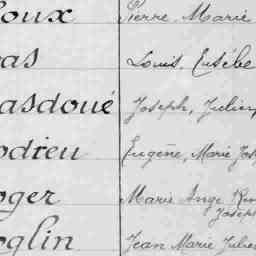 oux Pierre, Marie
as Louis, Eusèbe
asdoué Joseph, Julien,
odieu Eugène, Marie Jos
oger Marie Ange
Joseph
oglin Jean Marie Julien